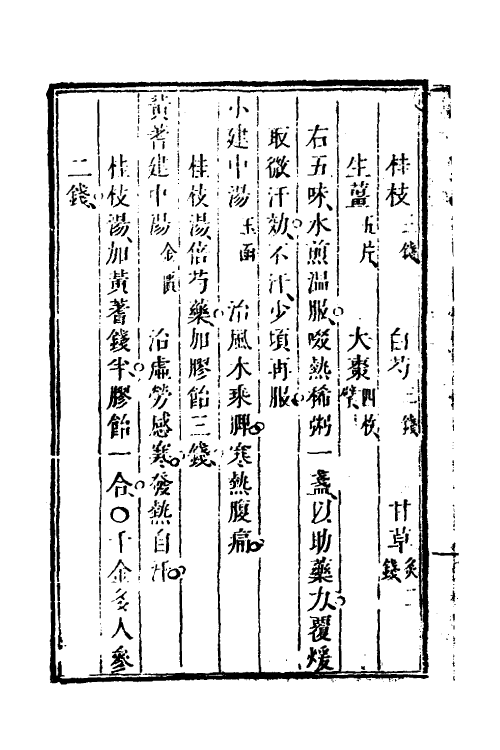 桂枝三錢 白芍三錢 甘草炙二錢
生薑五片 大棗四枚擘
右五味水煎温服啜熱稀粥一盞以助藥力覆煖
取微汗効不汗少頃再服
小建中湯玉函 治風木乘脾寒熱腹痛
桂枝湯倍芍藥加膠飴三錢
黃蓍建中湯金匱 治虛勞感寒發熱自汗
桂枝湯加黃蓍錢半膠飴一合〇千金多人參
二錢